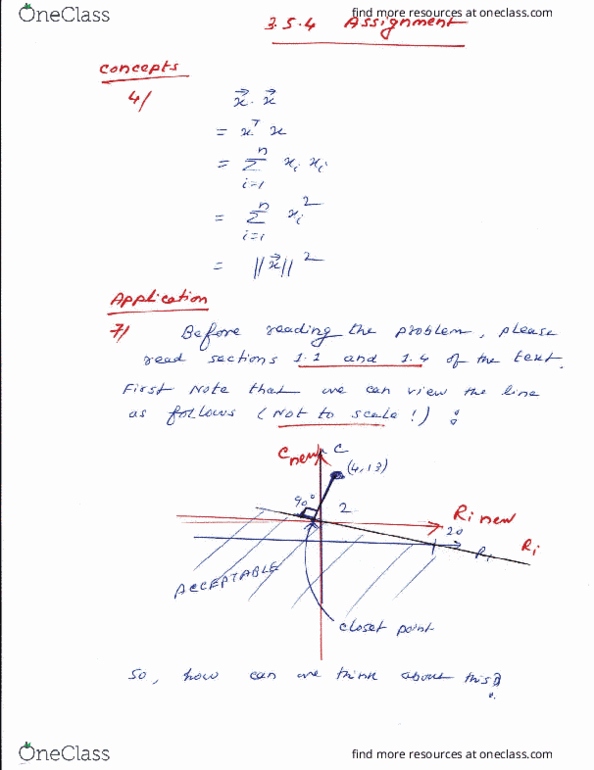 OneClass
find more resources at oneclass.com
3.5.4 Assignment
Concepts
4/ x⃗ · x⃗
= xᵀ x
= n Σ i=1 xᵢ xᵢ
= n Σ i=1 xᵢ²
= ||x⃗||²
Application
7/ Before reading the problem, please
read sections 1.1 and 1.4 of the text.
First Note that we can view the line
as follows (Not to scale!) :
Cnew C
(4,13)
90°
2
Ri new
20
Ri
Ri
ACCEPTABLE
closet point
So, how can we think about this?
OneClass
find more resources at oneclass.com